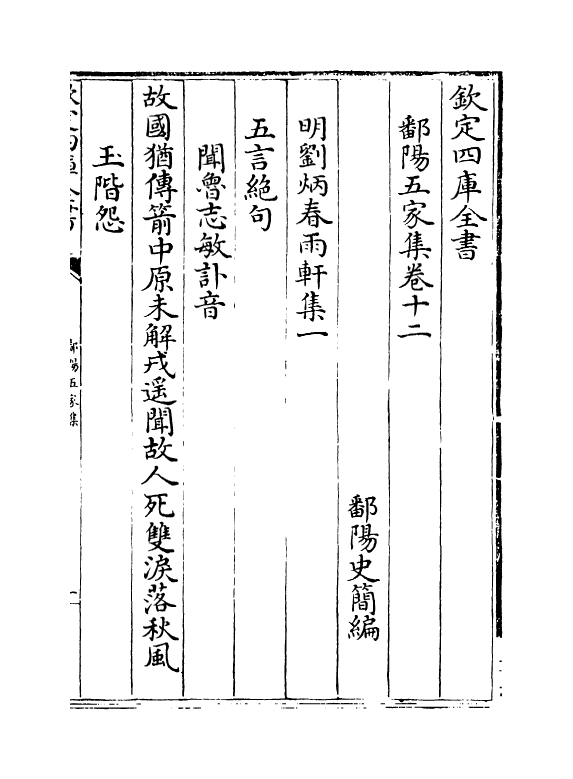 欽定四庫全書
鄱陽五家集卷十二
鄱陽史簡編
明劉炳春雨軒集一
五言絶句
聞魯志敏訃音
故國猶傳箭中原未解戎遥聞故人死雙淚落秋風
玉階怨
鄱陽五家集